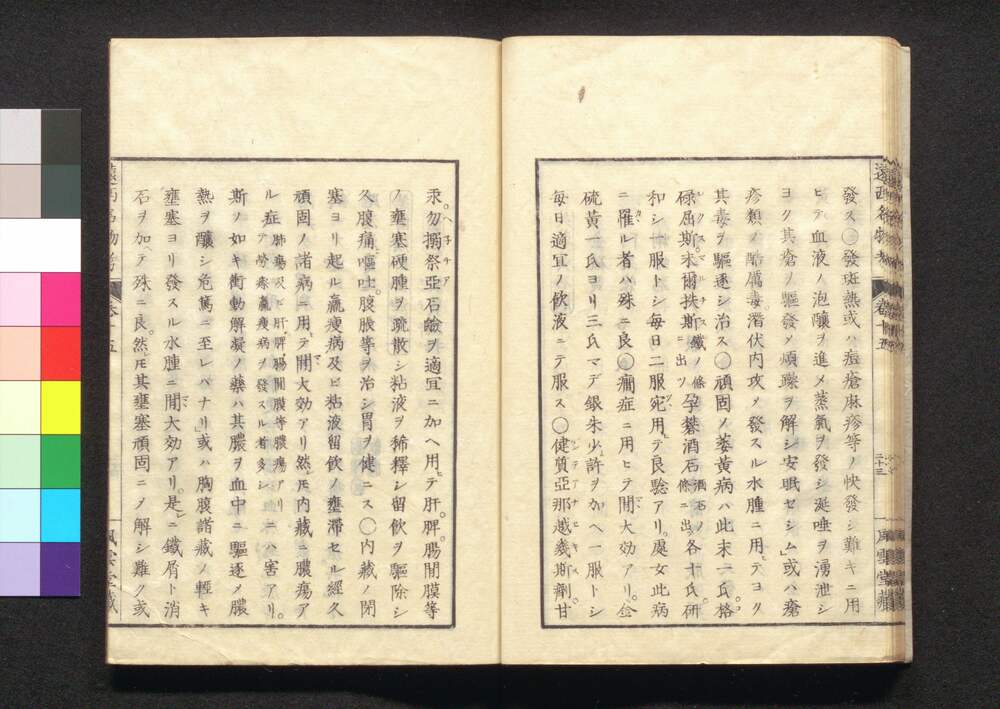 遠西名物考
卷十五
二十三
風雲堂藏
發ス○發斑熱或ハ痘瘡麻疹等ノ快發シ難キニ用
ヒテ血液ノ泡釀ヲ進メ蒸氣ヲ發シ涎唾ヲ湧泄シ
ヨク其瘡ノ驅發メ煩躁ヲ解シ安眠セシム」或ハ瘡
疹類ノ酷厲毒潛伏内攻メ發スル水腫ニ用テヨク
其毒ヲ驅逐シ治ス○頑固ノ萎黄病ハ此末一氏格
碌屈斯末爾扶斯鐵ノ條ニ出ツ孕鐵酒石酒石ノ條ニ出ツ各十氏研
和シ一服トシ毎日二服宛用テ良驗アリ處女此病
ニ罹ル者ハ殊ニ良○癇症ニ用ヒテ間大効アリ金
硫黄一氏ヨリ三氏マデ銀朱少許ヲカヘ一服トシ
毎日適宜ノ飲液ニテ服ス○健質亞那越幾斯劑甘
汞勿搦祭亞石鹼ヲ適宜ニ加ヘ用ヒテ肝脾腸間膜等
ノ壅塞硬腫ヲ疏散シ粘液ヲ稀釋シ留飲ヲ驅除シ
久腹痛嘔吐腹脹等ヲ治シ胃ヲ健ニス○内藏ノ閉
塞ヨリ起ル羸瘦病及ヒ粘液留飲ノ壅滞セル經久
頑固ノ諸病ニ用テ間大効アリ然𪜈内藏ニ膿瘍ア
ル症肺瘍及ヒ肝脾腸間膜等膿瘍アリテ勞瘵羸瘦病ヲ發スル者多シニハ害アリ
斯ノ如キ衝動解凝ノ藥ハ其膿ヲ血中ニ驅逐メ膿
熱ヲ釀シ危篤ニ至レバナリ」或ハ胸腹諸藏ノ輕キ
壅塞ヨリ發スル水腫ニ間大効アリ是ニ鐵屑ト消
石ヲ加ヘテ殊ニ良然𪜈其壅塞頑固ニメ解シ難ク或
遠西名物考
卷十五
風雲堂藏